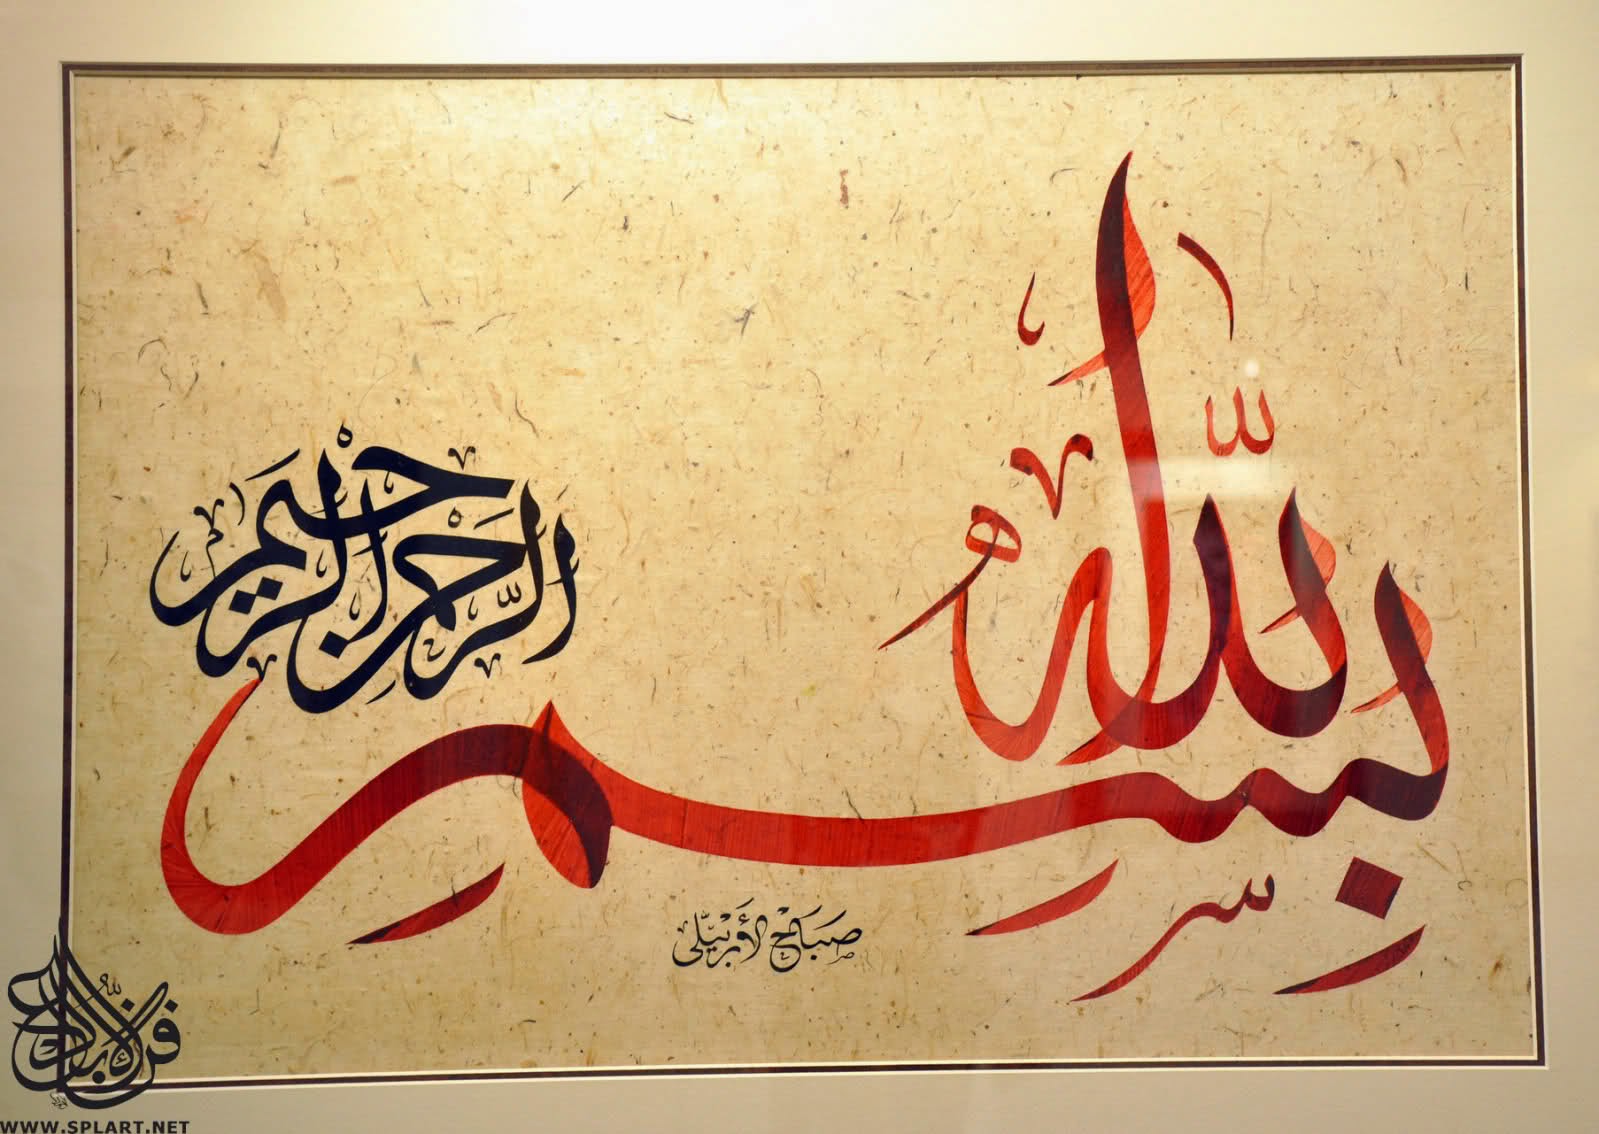 بسم الله الرحمن الرحيم
صباح الأربيلي
فن الإبداع
WWW.SPLART.NET